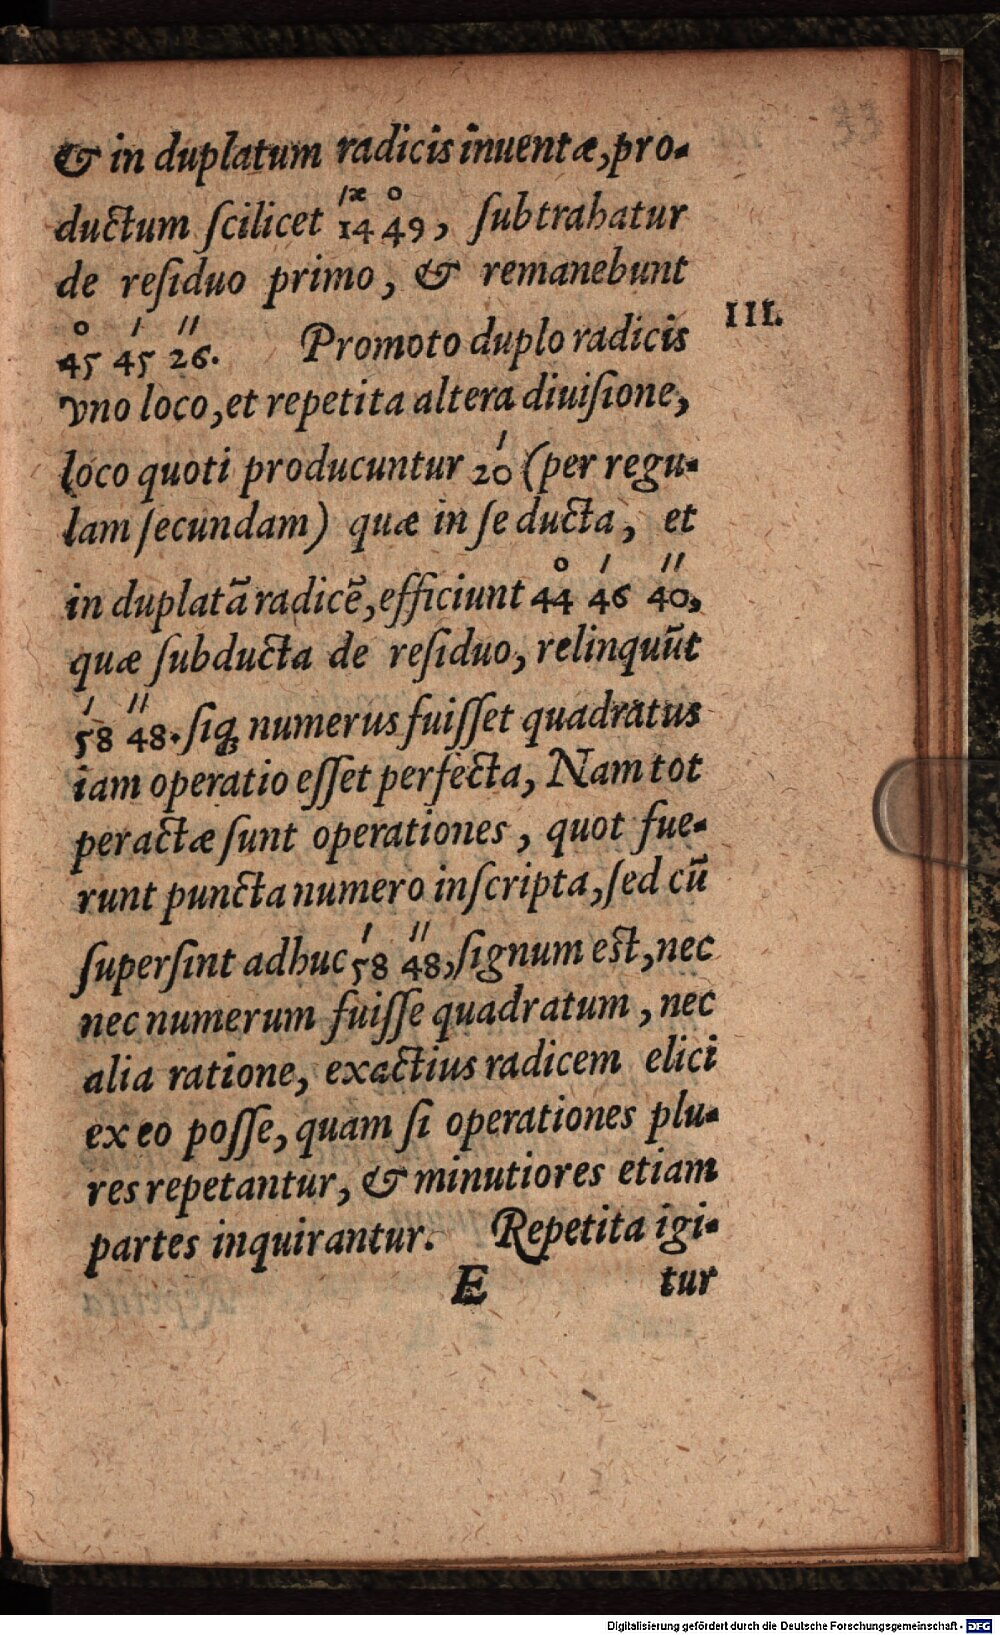 & in duplatum radicis inuentæ, pro-
1æ 0
ductum ſcilicet 14 49, ſubtrahatur
de reſiduo primo, & remanebunt
0 ı ıı
45 45 26. Promoto duplo radicis
III.
vno loco, et repetita altera diuiſione,
ı
loco quoti producuntur 20 (per regu-
lam ſecundam) quæ in ſe ducta, et
0 ı ıı
in duplatā radicē, efficiunt 44 46 40,
quæ ſubducta de reſiduo, relinquūt
ı ıı
58 48. ſiq; numerus fuiſſet quadratus
iam operatio eſſet perfecta, Nam tot
peractæ ſunt operationes, quot fue-
runt puncta numero inſcripta, ſed cū
ı ıı
ſuperſint adhuc 58 48, ſignum eſt, nec
nec numerum fuiſſe quadratum, nec
alia ratione, exactius radicem elici
ex eo poſſe, quam ſi operationes plu-
res repetantur, & minutiores etiam
partes inquirantur. Repetita igi-
E tur
Digitalisierung gefördert durch die Deutsche Forschungsgemeinschaft - DFG